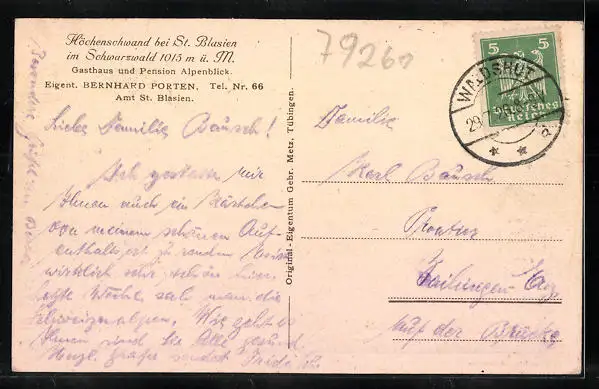 Höchenschwand bei St. Blasien
im Schwarzwald 1015 m ü. M.
Gasthaus und Pension Alpenblick.
Eigent. BERNHARD PORTEN, Tel. Nr. 66
Amt St. Blasien.
79260
5 5
Deutsches
Reich
WALDSHUT
29
Original-Eigentum Gebr. Metz, Tübingen.
Liebe Familie Bausch!
Ich gestatte mir
Ihnen auch ein Kärtchen
von meinem schönen Auf-
enthaltsort zu senden
wirklich sehr schön hier
letzte Woche sah man die
Schweizeralpen. Wie geht es
Ihnen sind Sie Alle gesund
Herzl. Grüße sendet
Familie
Karl Bausch
auf der Brücke